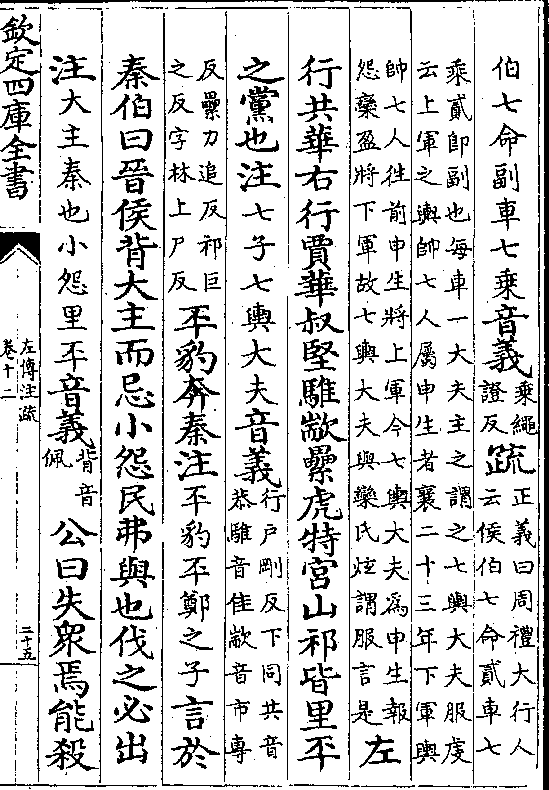 伯七命副車七乘音義乘繩證反疏正義曰周禮大行人云侯伯七命貳車七
乘貳即副也每車一大夫主之謂之七輿大夫服虔云上軍之輿帥七人屬申生者襄二十三年下軍輿
帥七人徃前申生將上軍今七輿大夫爲申生報怨欒盈將下軍故七輿大夫與欒氏炫謂服言是左
行共華右行賈華叔堅騅歂纍虎特宫山祁皆里丕
之黨也注七子七輿大夫音義行户剛反下同共音恭騅音隹歂音市專
反纍力追反祁巨之反字林上尸反丕豹奔秦注丕豹丕鄭之子言於
秦伯曰晉侯背大主而忌小怨民弗與也伐之必出
注大主秦也小怨里丕音義背音佩公曰失衆焉能殺
欽定四庫全書
左傳注疏
卷十二
二十五